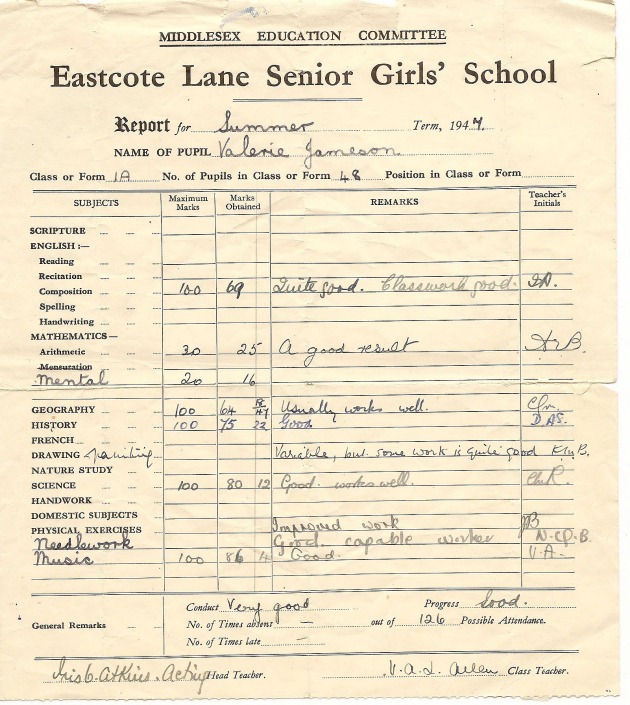 MIDDLESEX EDUCATION COMMITTEE
Eastcote Lane Senior Girls' School
Report for Summer Term, 1947.
NAME OF PUPIL Valerie Jameson
Class or Form 1A No. of Pupils in Class or Form 48 Position in Class or Form
SUBJECTS Maximum Marks Marks Obtained REMARKS Teacher's Initials
SCRIPTURE
ENGLISH :—
Reading
Recitation
Composition 100 69 Quite good. Classwork good.
Spelling
Handwriting
MATHEMATICS—
Arithmetic 30 25 A good result
Mensuration
Mental 20 16 –
GEOGRAPHY 100 64 Usually works well.
HISTORY 100 75 22 Good D.A.S.
FRENCH
DRAWING & painting Variable, but some work is quite good
NATURE STUDY
SCIENCE 100 80 12 Good. works well.
HANDWORK
DOMESTIC SUBJECTS
PHYSICAL EXERCISES Improved work
Needlework Good. capable worker
Music 100 86 4 Good. V.A.
General Remarks
Conduct Very good Progress Good.
No. of Times absent — out of 126 Possible Attendance.
No. of Times late —
Atkins. Acting Head Teacher. V.A.L. Allen Class Teacher.